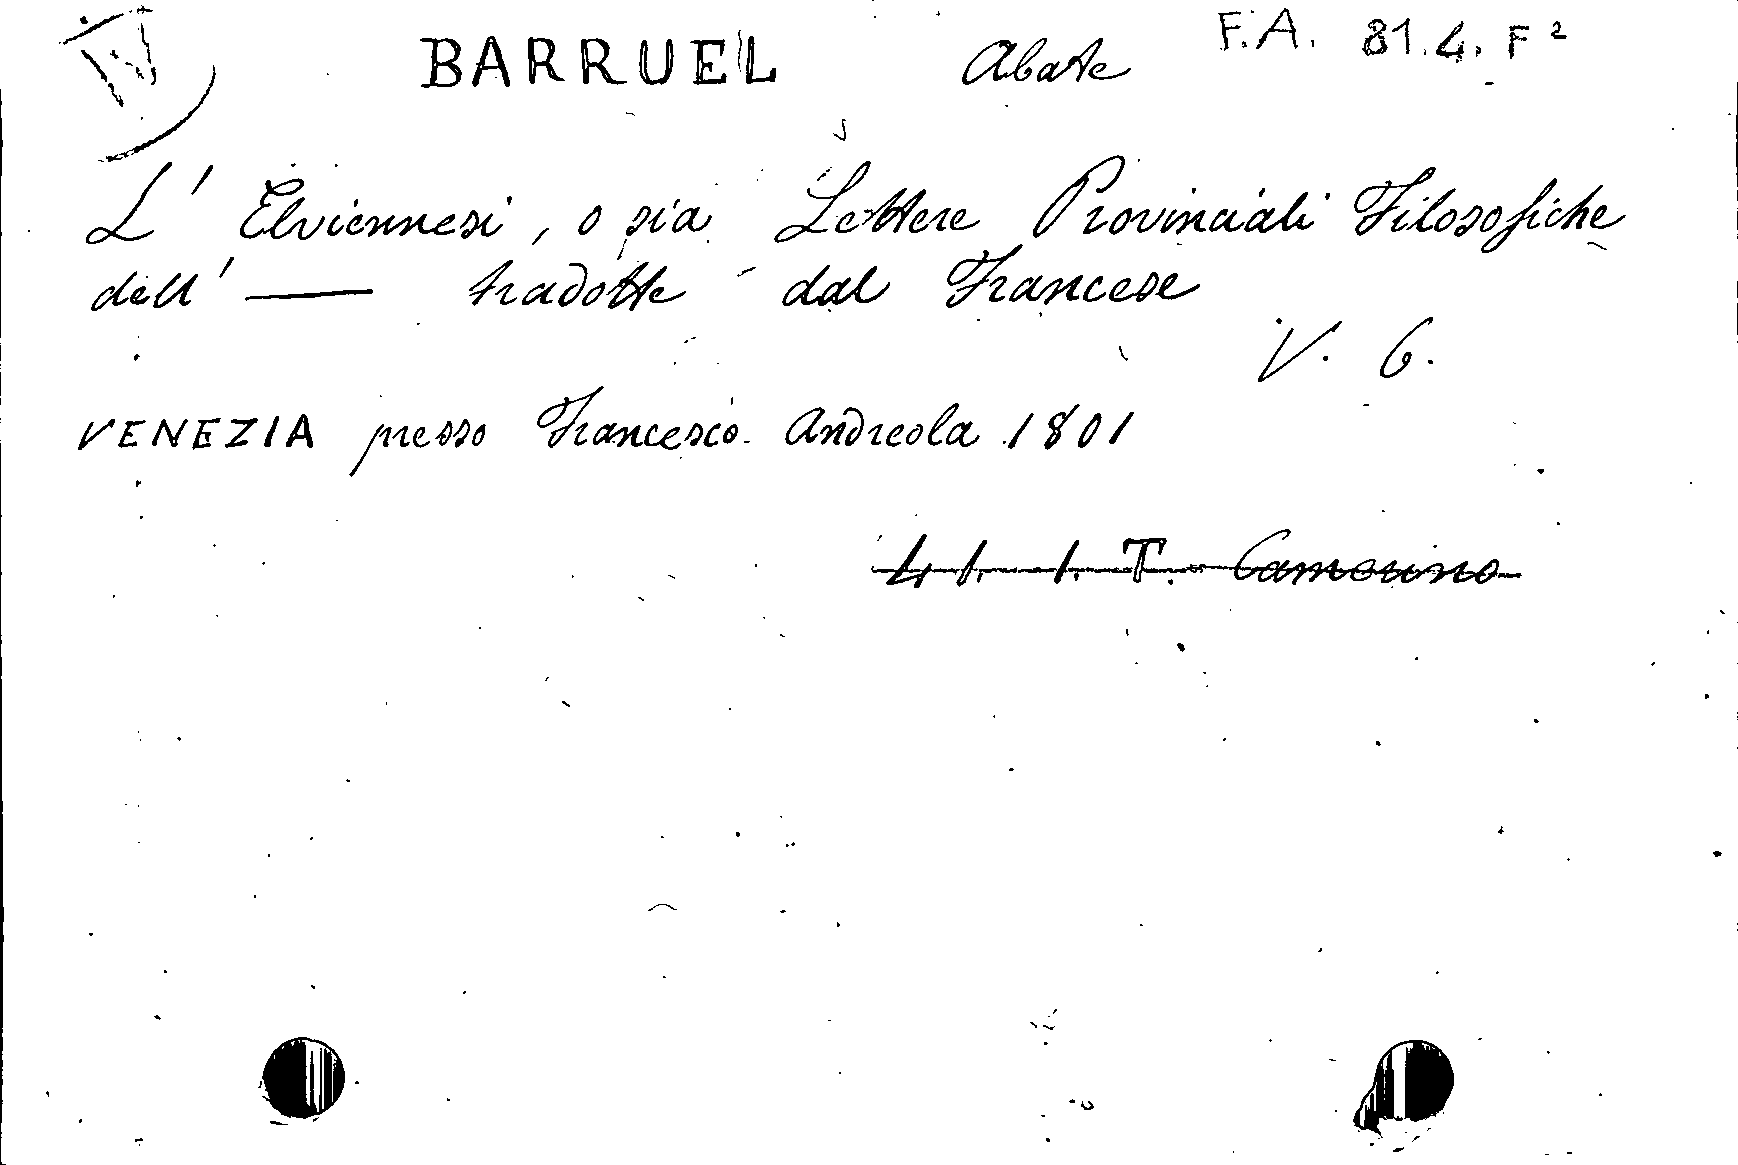 IV BARRUEL Abate F.A. 81.4. F²
L' Elviennesi, o sia Lettere Provinciali Filosofiche
dell' — tradotte dal Francese
V. 6.
VENEZIA presso Francesco Andreola 1801
L, 1. 1. T. Camerino